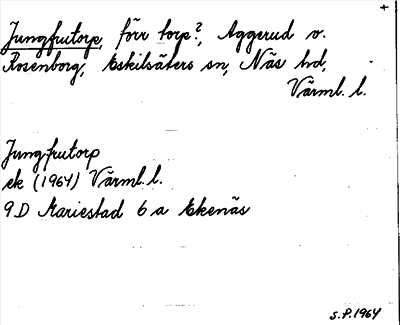 +
Jungfrutorp, förr torp?, Aggerud o.
Rosenborg, Eskilsäters sn, Näs hd,
Värml. l.
Jungfrutorp
ek (1964) Värml. l.
9D Mariestad 6 a Ekenäs
S.P. 1964